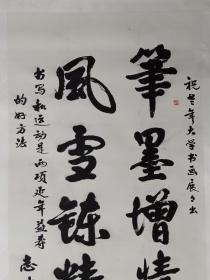 祝老年大学书画展多出
筆墨增情
風雪鍊精
书写和运动是两项延年益寿
的好方法